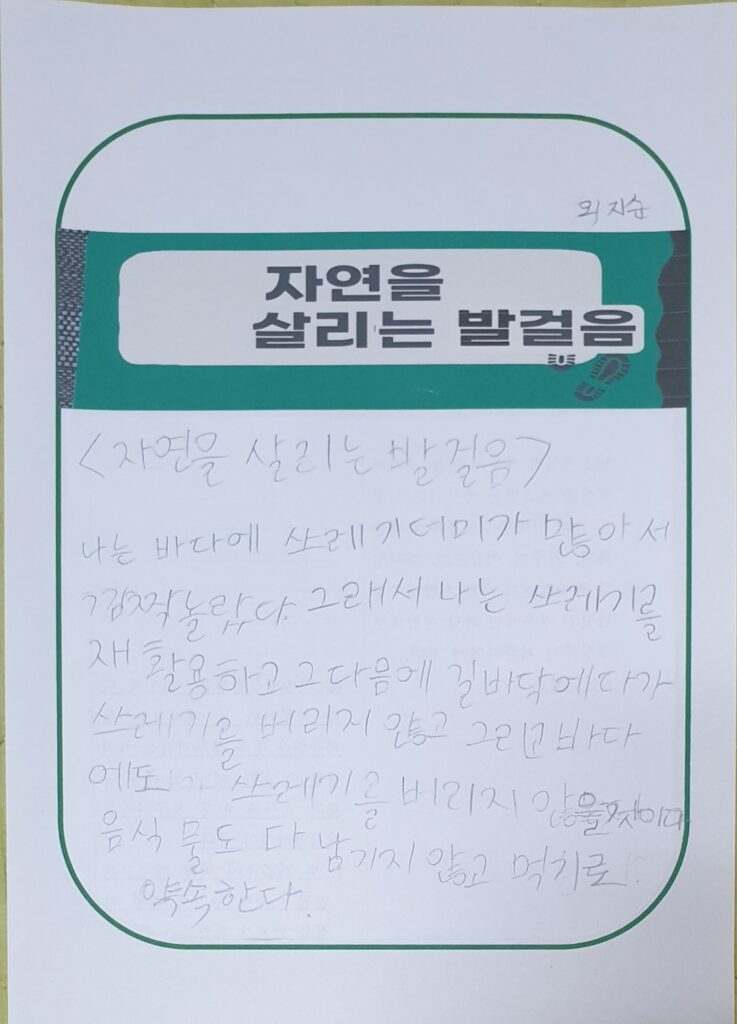 지순
자연을
살리는 발걸음
<자연을 살리는 발걸음>
나는 바다에 쓰레기더미가 많아서
깜짝놀랐다. 그래서 나는 쓰레기를
재활용하고 그다음에 길바닥에다가
쓰레기를 버리지 않고 그리고 바다
에도 쓰레기를 버리지 않을것이다
음식물도 다 남기지 않고 먹기로
약속한다.